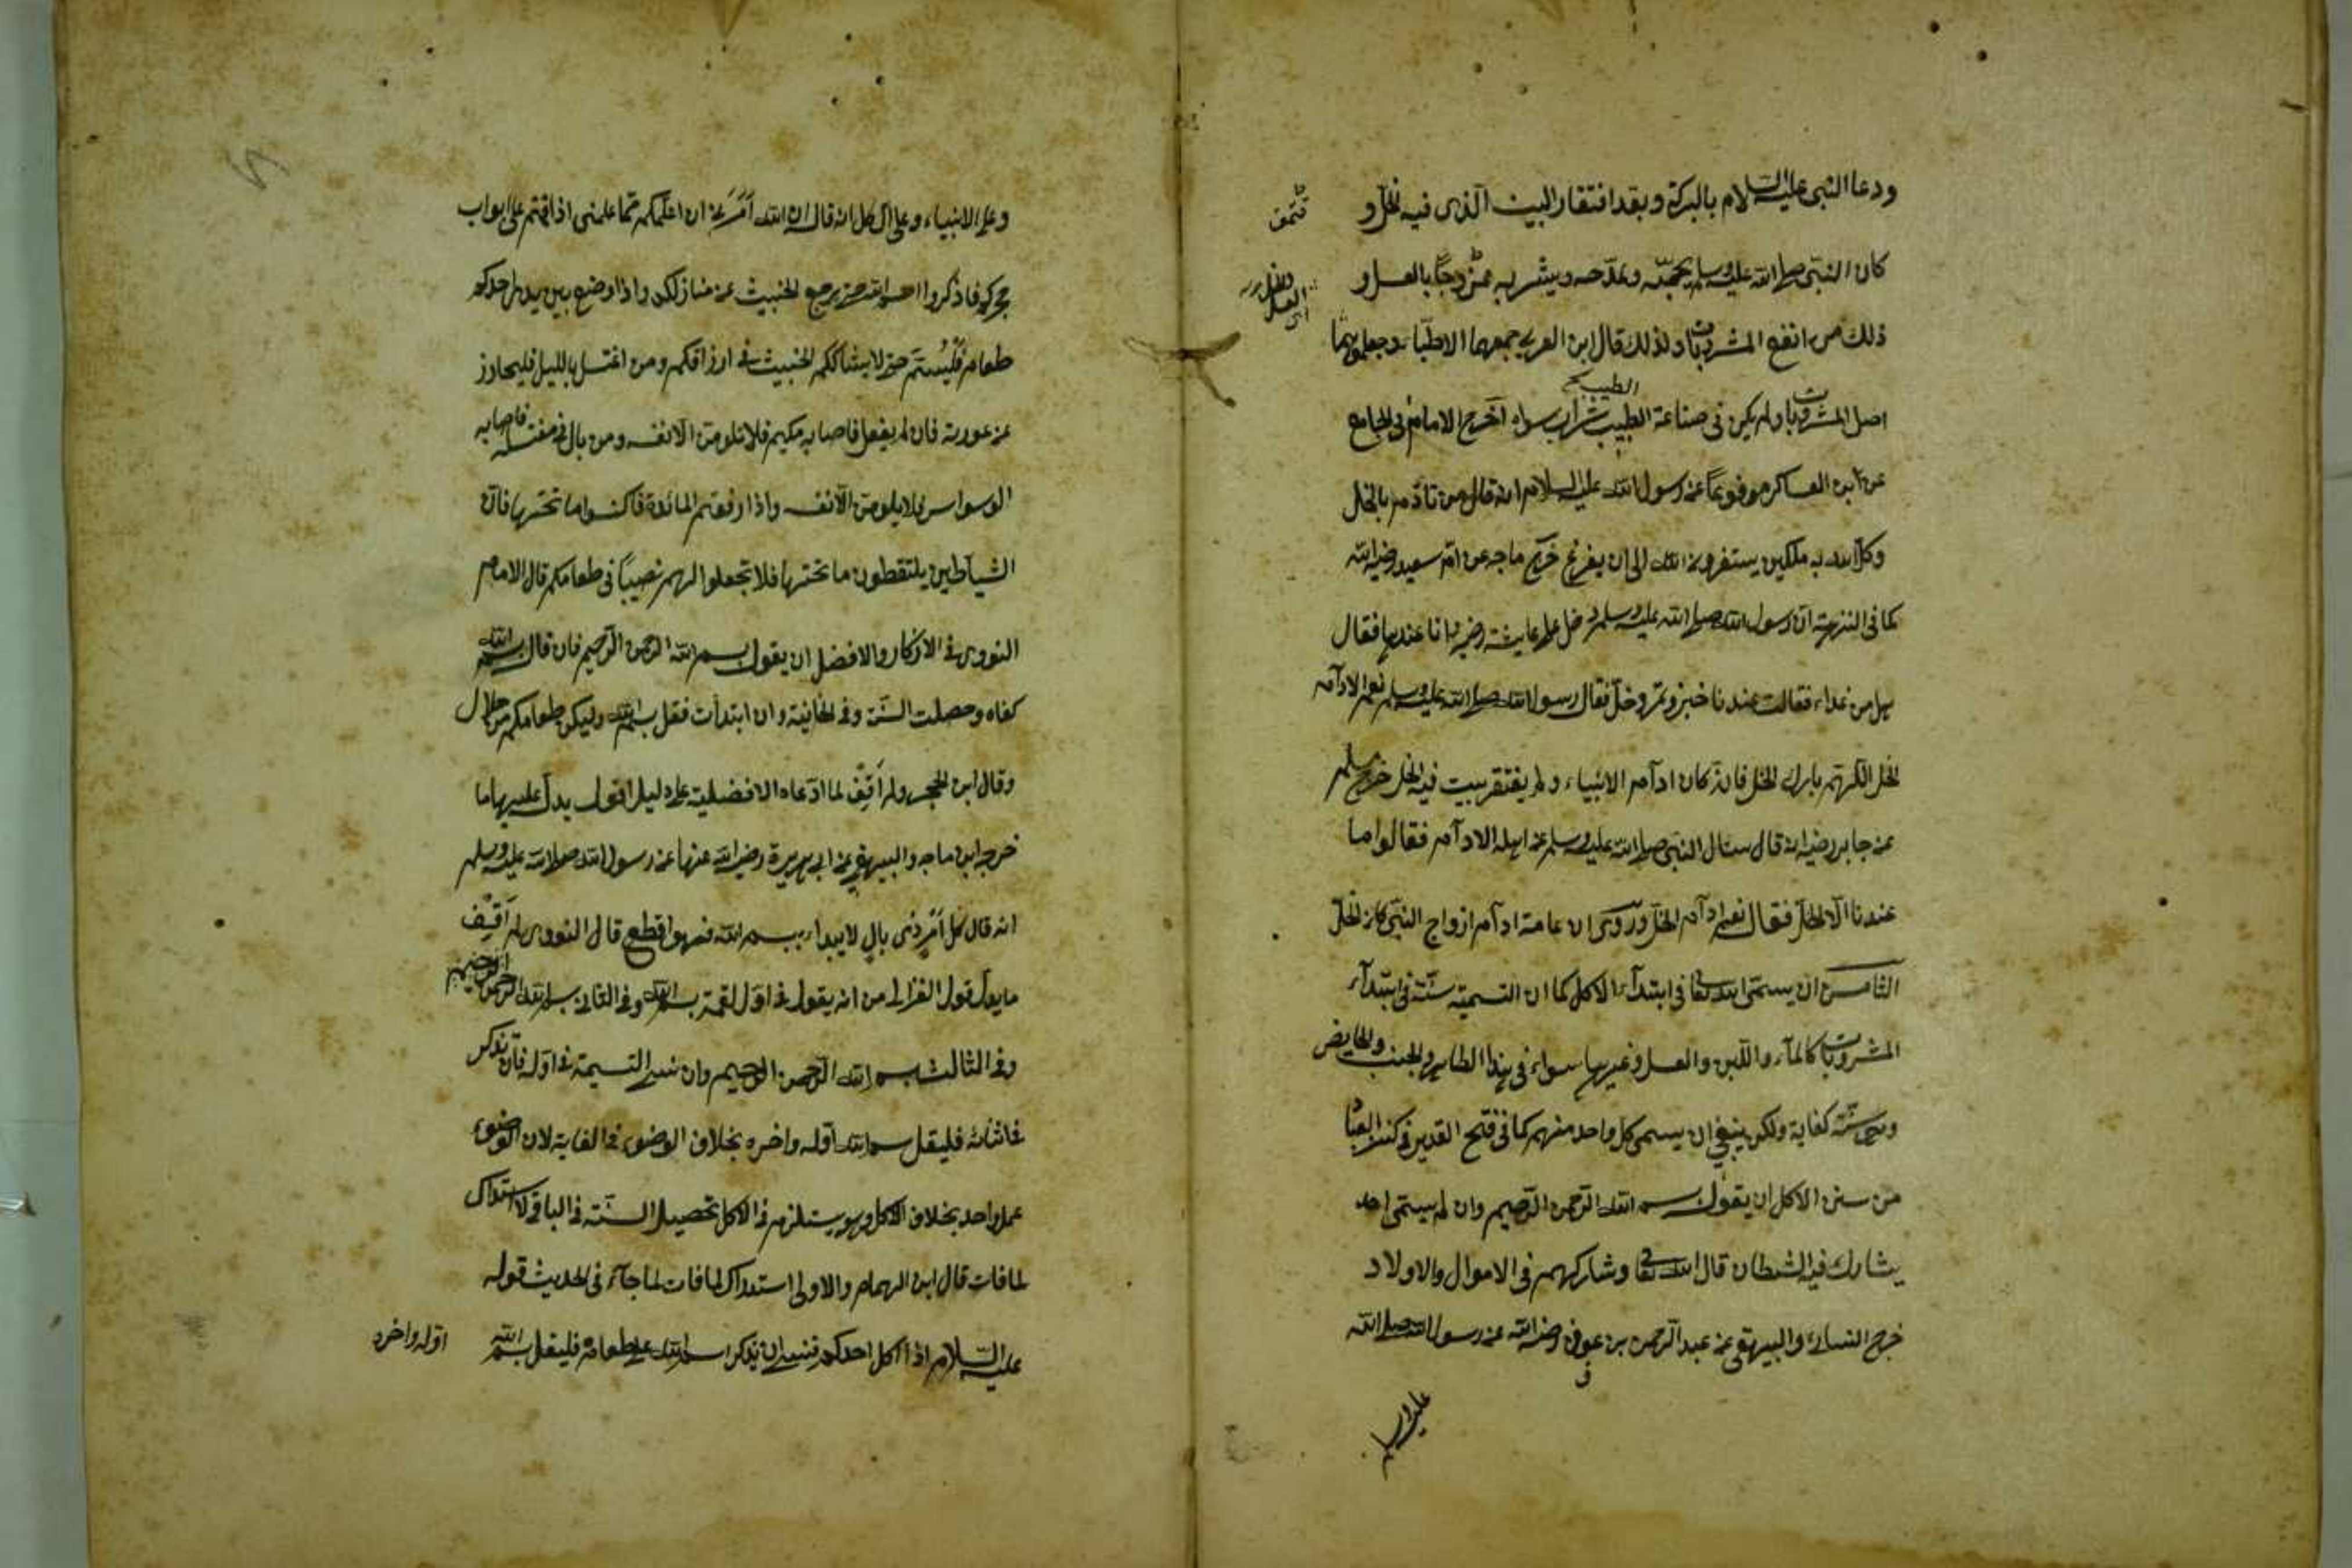 ودعا النبى عليه السلام بالبركة وبعد افتقار البيت الذى فيه الخل و
كان النبى صلى الله عليه وسلم يحبه ويمدحه ويشربه ممزوجًا بالعسل و
ذلك من انفع المشروبات ولذلك قال ابن العربى جمعهما الاطباء وجعلوهما
اصل المشروبات ولم يكن فى صناعة الطبيب شراب سواه اخرج الامام فى الجامع
عن ابن العساكر مرفوعًا عن رسول الله عليه السلام انه قال من تأدم بالخل
وكل الله به ملكين يستغفرون الله الى ان يفرغ خرج ماجه عن ام سعيد رضى الله
كما فى النزهة ان رسول الله صلى الله عليه وسلم دخل على عايشة رضى وانا عندها فقال
هل من غداء فقالت عندنا خبز وتمر وخل فقال رسول الله صلى الله عليه وسلم نعم الادآم
الخل اللهم بارك الخل فانه كان ادآم الانبياء ولم يفتقر بيت فيه الخل خرج مسلم
عن جابر رضى انه قال سئال النبى صلى الله عليه وسلم عن اهله الادآم فقالوا ما
عندنا الا الخل فقال نعم ادآم الخل وروى ان عامة ادآم ازواج النبى كان الخل
الثامن ان يسمى الله تعا فى ابتدآء الاكل كما ان التسمية سنة فى ابتدآء
المشروبات كالمآء واللبن والعسل وغيرها سواء فى هذا الطاهر والجنب والحايض
وهى سنة كفاية ولكن ينبغى ان يسمى كل واحد منهم كما فى فتح القدير فى كنز العباد
من سنن الاكل ان يقول بسم الله الرحمن الرحيم وان لم يسمى احد
يشارك فيه الشيطان قال الله تعا وشاركهم فى الاموال والاولاد
خرج النسائى والبيهقى عن عبد الرحمن بن عوف رضى الله عن رسول الله صلى الله
عليه وسلم
وعلى الانبياء وعلى ال كل انه قال ان الله اَمَرَنى ان اعلمكم مما علمنى اذا قمتم على ابواب
حجركم فاذكروا اسم الله حتى يرجع الخبيث عن منازلكم واذا وضع بين يدى احدكم
طعام فليُسَمّ حتى لا يشاككم الخبيث فى ارزاقكم ومن اغتسل بالليل فليحاذر
عن عورته فان لم يفعل فاصابه فلا تلومن الا نفسه ومن بال فى مغتسله فاصابه
الوسواس فلا يلومن الا نفسه واذا رفعتم المائدة فاكنسوا ما تحتها فان
الشياطين يلتقطون ما تحتها فلا تجعلوا لهم نصيبًا فى طعامكم قال الامام
النووى فى الاذكار والافضل ان يقول بسم الله الرحمن الرحيم فان قال بسم الله
كفاه وحصلت السنة وفى الخانية وان ابتدأت فقل بسم الله وليكن طعامكم من حلال
وقال ابن الحجر ولم اَقِف لما ادعاه الافضلية على دليل اقول يدل عليها ما
خرجه ابن ماجه والبيهقى عن ابى هريرة رضى الله عنها عن رسول الله صلى الله عليه وسلم
انه قال كل اَمْرٍ ذى بالٍ لا يبداء ببسم الله فهو اقطع قال النووى لم اَقِف
ما يدل قول الغزالى من انه يقول فى اول لقمة بسم الله وفى الثانى بسم الله الرحمن الرحيم
وفى الثالث بسم الله الرحمن الرحيم وان نسى التسمية فى اوله فان تذكر
فى اثنائه فليقل بسم الله اوله واخره بخلاف الوضوء فى الغاية لان الوضوء
عمل واحد بخلاف الاكل وهو يستلزم فى الاكل تحصيل السنة فى الباقى لا استدراك
لما فات قال ابن الهمام والاولى استدراك لما فات لما جآء فى الحديث قوله
عليه السلام اذا اكل احدكم فنسى ان يذكر اسم الله على طعامه فليقل بسم الله
اوله واخره